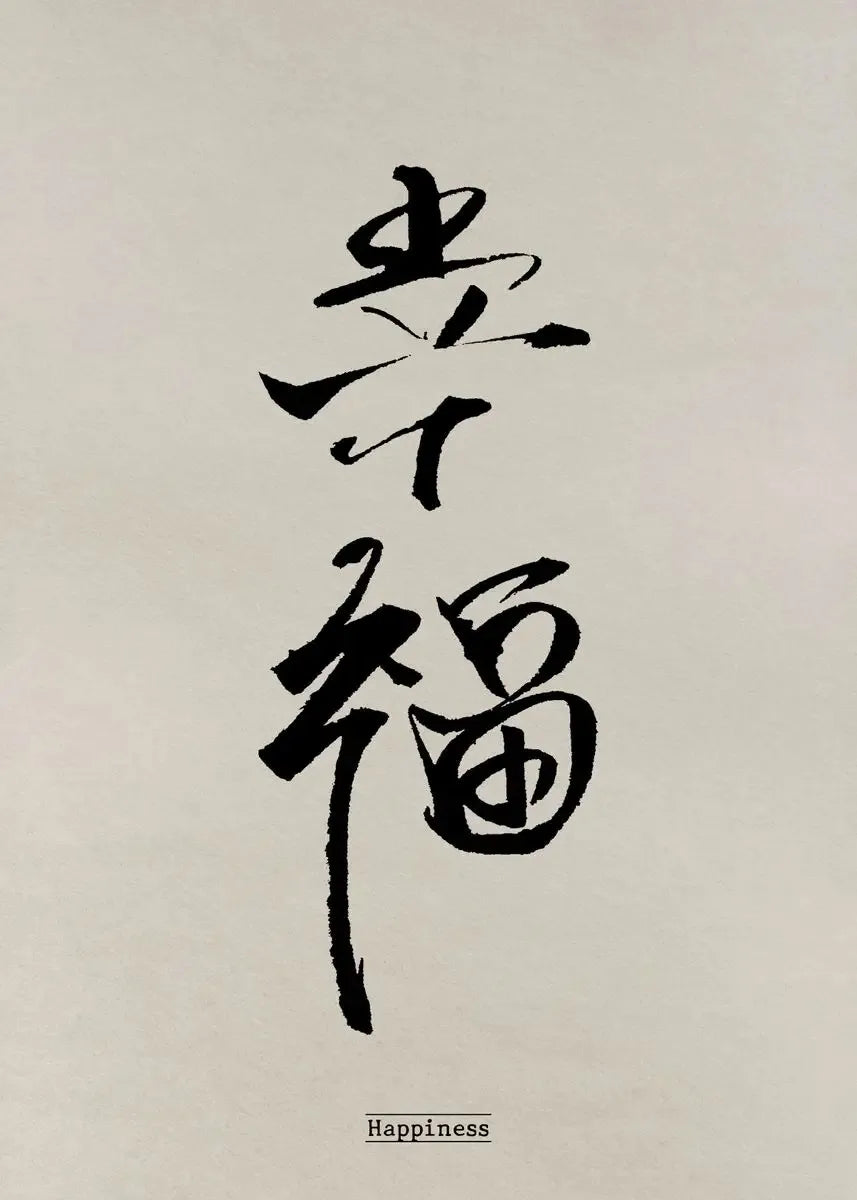 幸福
Happiness